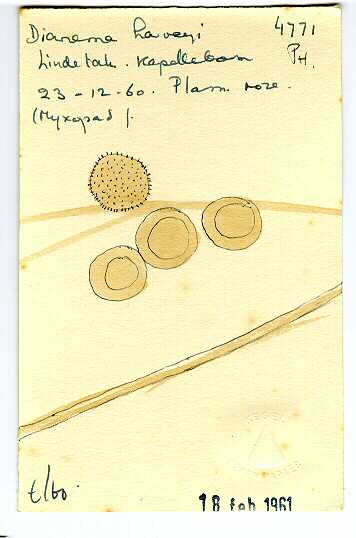 Dianema harveyi 4771
Lindetak. Kapelleboom PH.
23-12-60. Plasm. roze.
(Myxopad).
t/60.
18 feb 1961